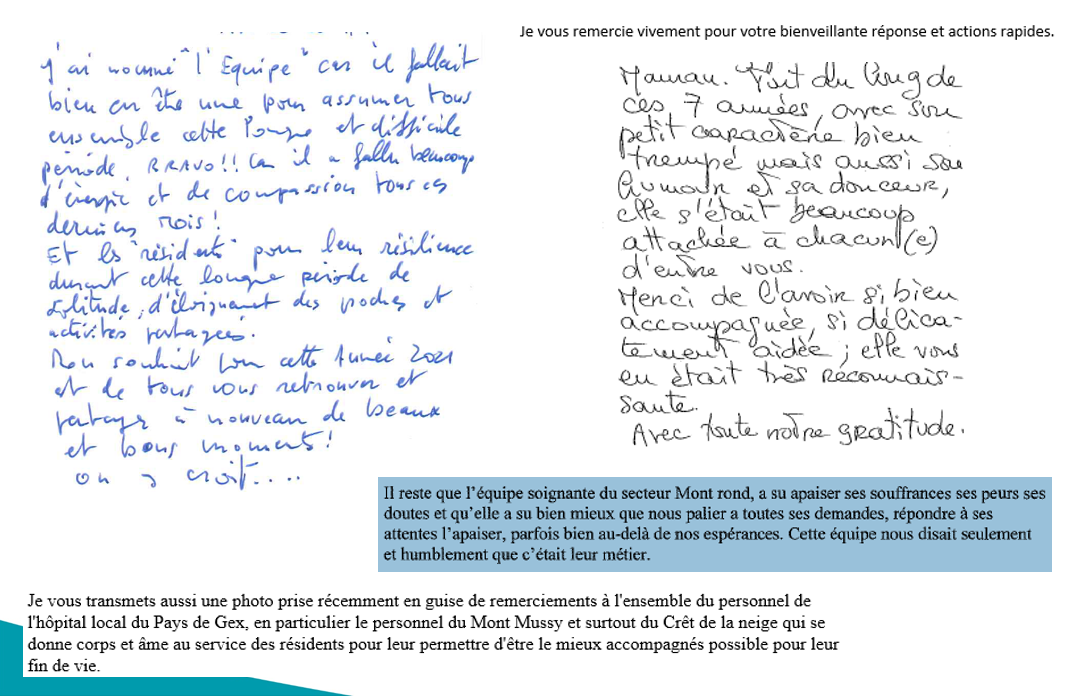 Je vous remercie vivement pour votre bienveillante réponse et actions rapides.
J'ai nommé "l'Equipe" car il fallait
bien en être une pour assumer tous
ensemble cette longue et difficile
période. BRAVO!! Car il a fallu beaucoup
d'énergie et de compassion tous ces
derniers mois!
Et les "résidents" pour leur résilience
durant cette longue période de
solitude, d'éloignement des proches et
activités partagées.
Mon souhait pour cette Année 2021
est de tous vous retrouver et
partager à nouveau de beaux
et bons moments!
on y croit....
Maman. Tout du long de
ces 7 années, avec son
petit caractère bien
trempé mais aussi son
humour et sa douceur,
elle s'était beaucoup
attachée à chacun(e)
d'entre vous.
Merci de l'avoir si bien
accompagnée, si délica-
tement aidée ; elle vous
en était très reconnais-
sante.
Avec toute notre gratitude.
Il reste que l'équipe soignante du secteur Mont rond, a su apaiser ses souffrances ses peurs ses
doutes et qu'elle a su bien mieux que nous palier a toutes ses demandes, répondre à ses
attentes l'apaiser, parfois bien au-delà de nos espérances. Cette équipe nous disait seulement
et humblement que c'était leur métier.
Je vous transmets aussi une photo prise récemment en guise de remerciements à l'ensemble du personnel de
l'hôpital local du Pays de Gex, en particulier le personnel du Mont Mussy et surtout du Crêt de la neige qui se
donne corps et âme au service des résidents pour leur permettre d'être le mieux accompagnés possible pour leur
fin de vie.